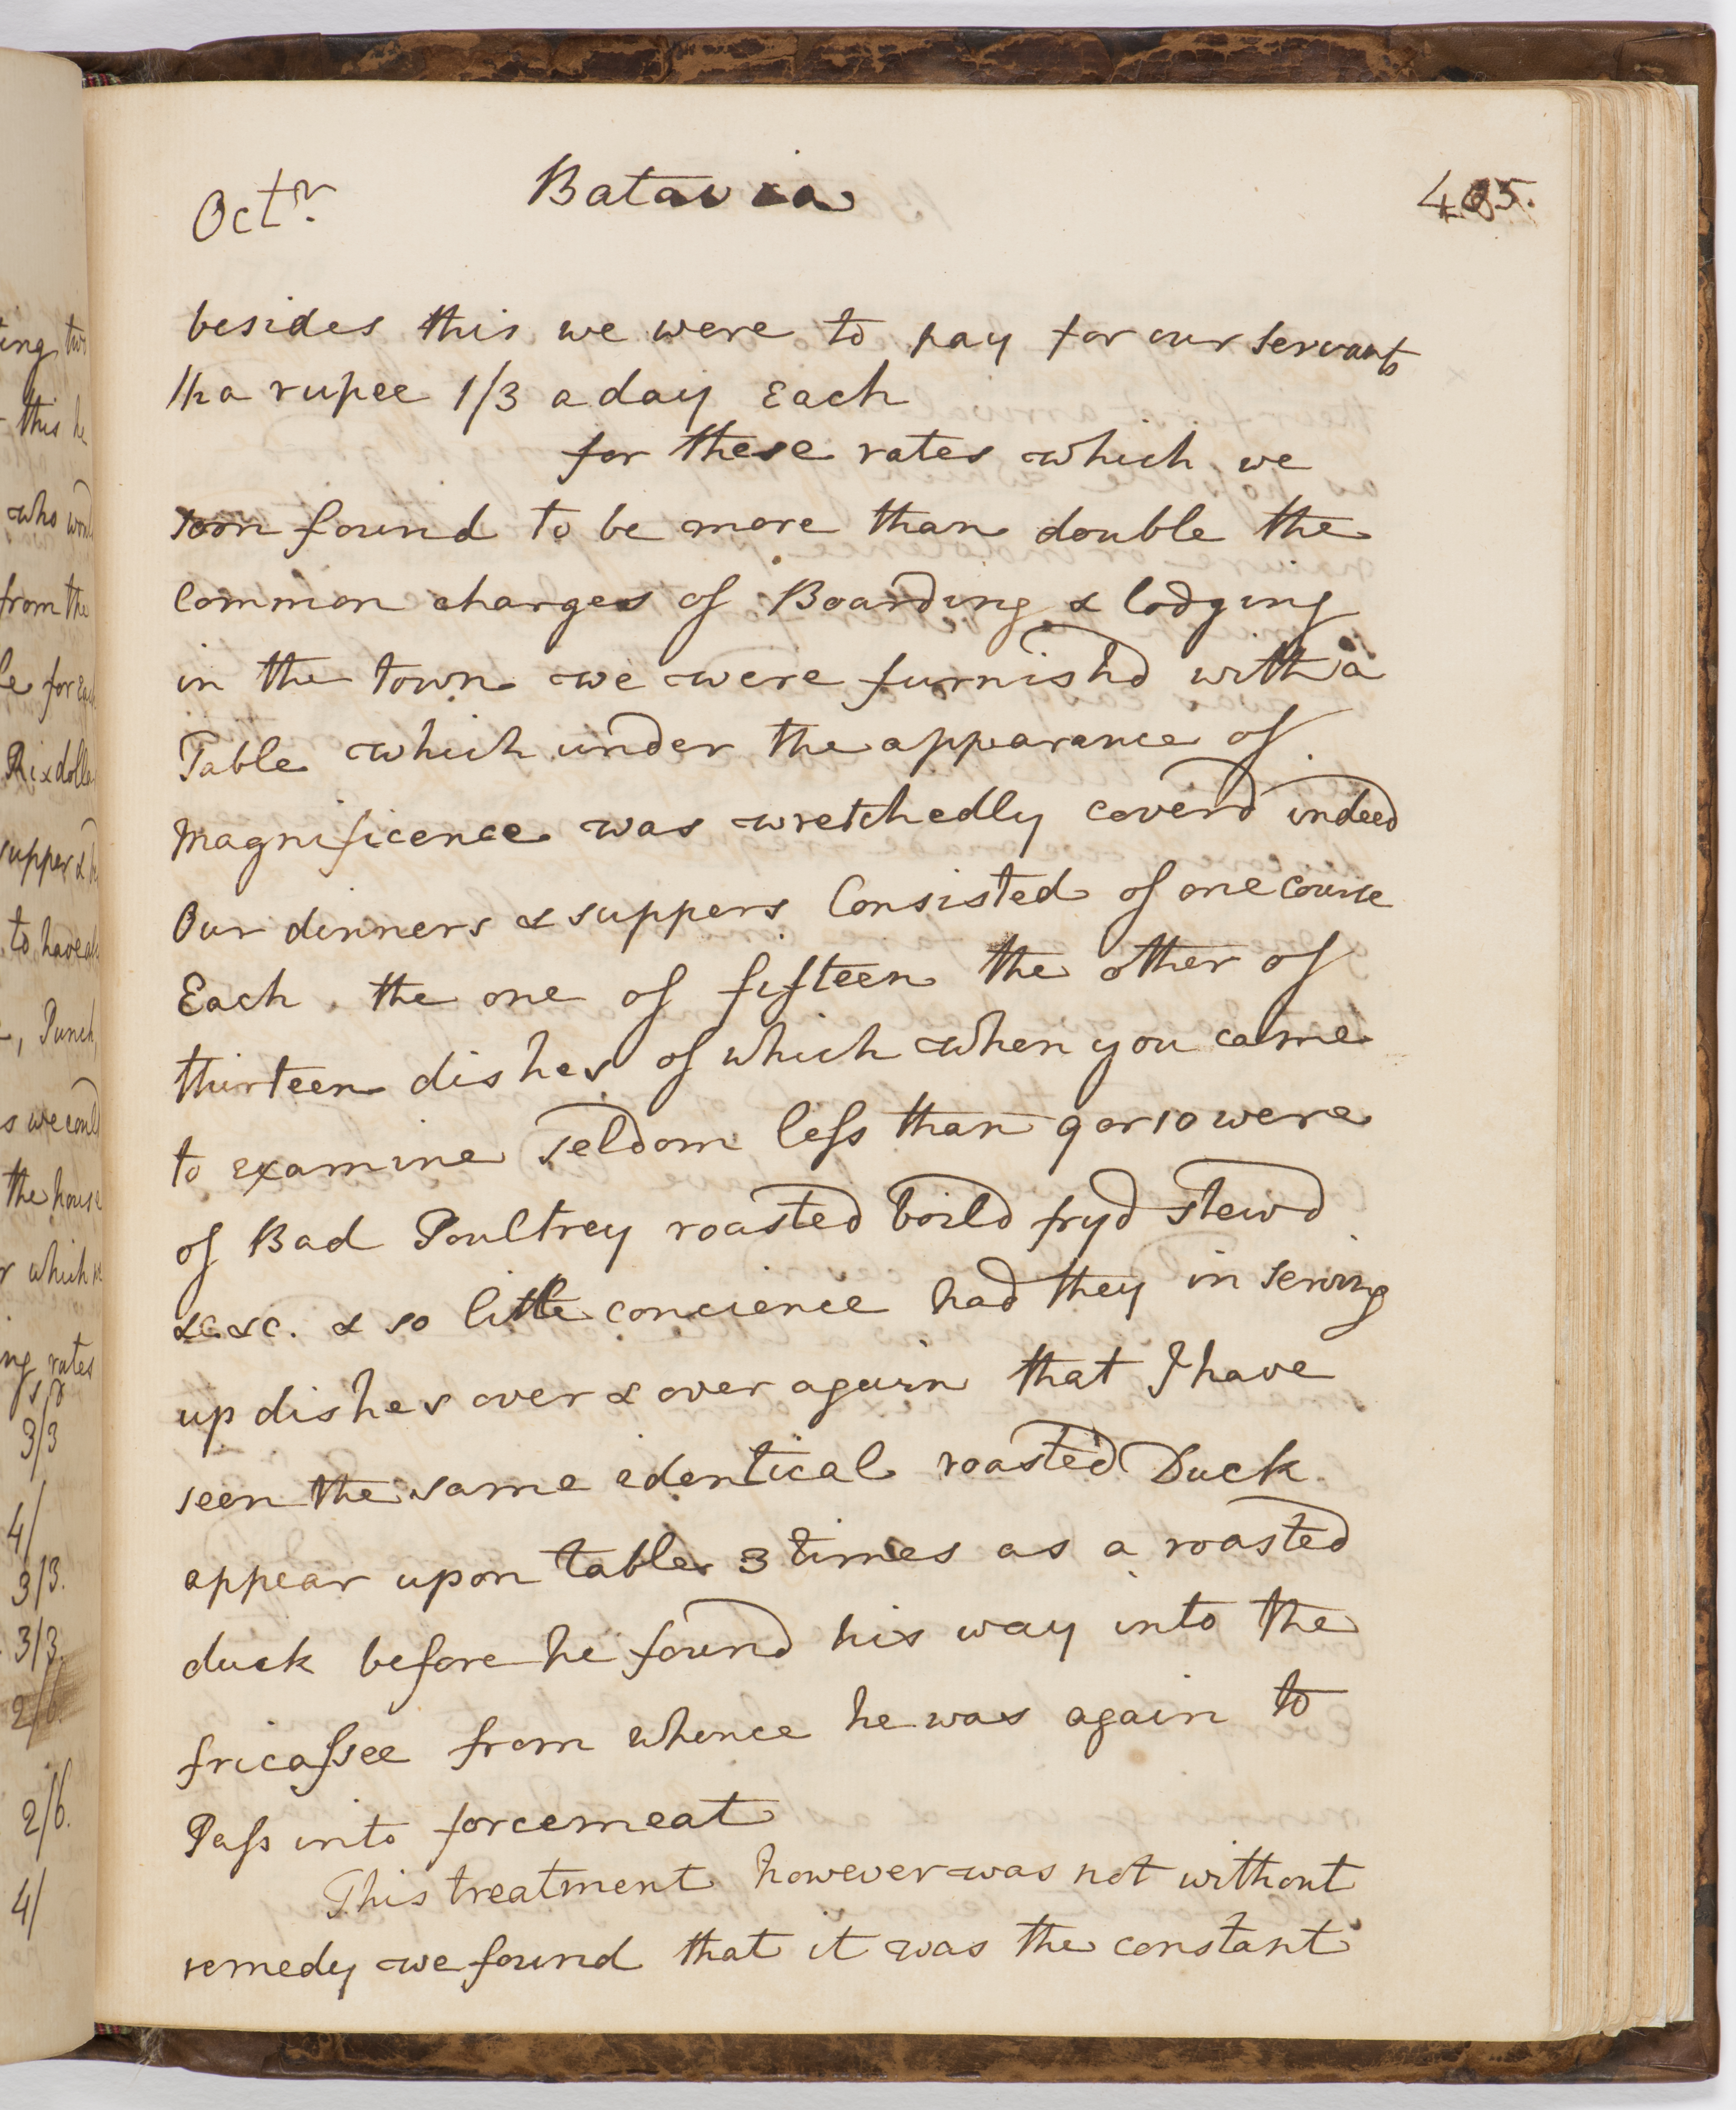 Octr. Batavia 405.
besides this we were to pay for our servants
1/2 a rupee 1/3 a day Each
for these rates which we
soon found to be more than double the
Common charges of Boarding & lodging
in the town we were furnishd with a
Table which under the appearance of
magnificence was wretchedly coverd indeed
Our dinners & suppers Consisted of one course
Each, the one of fifteen the other of
thirteen dishes of which when you came
to examine seldom less than 9 or 10 were
of Bad Poultrey roasted boild fryd stewd
&c. &c. & so little concience had they in serving
up dishes over & over again that I have
seen the same identical roasted Duck
appear upon table 3 times as a roasted
duck before he found his way into the
fricassee from whence he was again to
Pass into forcemeat
This treatment however was not without
remedy we found that it was the constant
this he
who
from the
for
Rixdolla
supper &
to have
Punch,
we
the house
which
rates
3/3
4/
3/3.
3/3.
2/6.
2/6.
4/